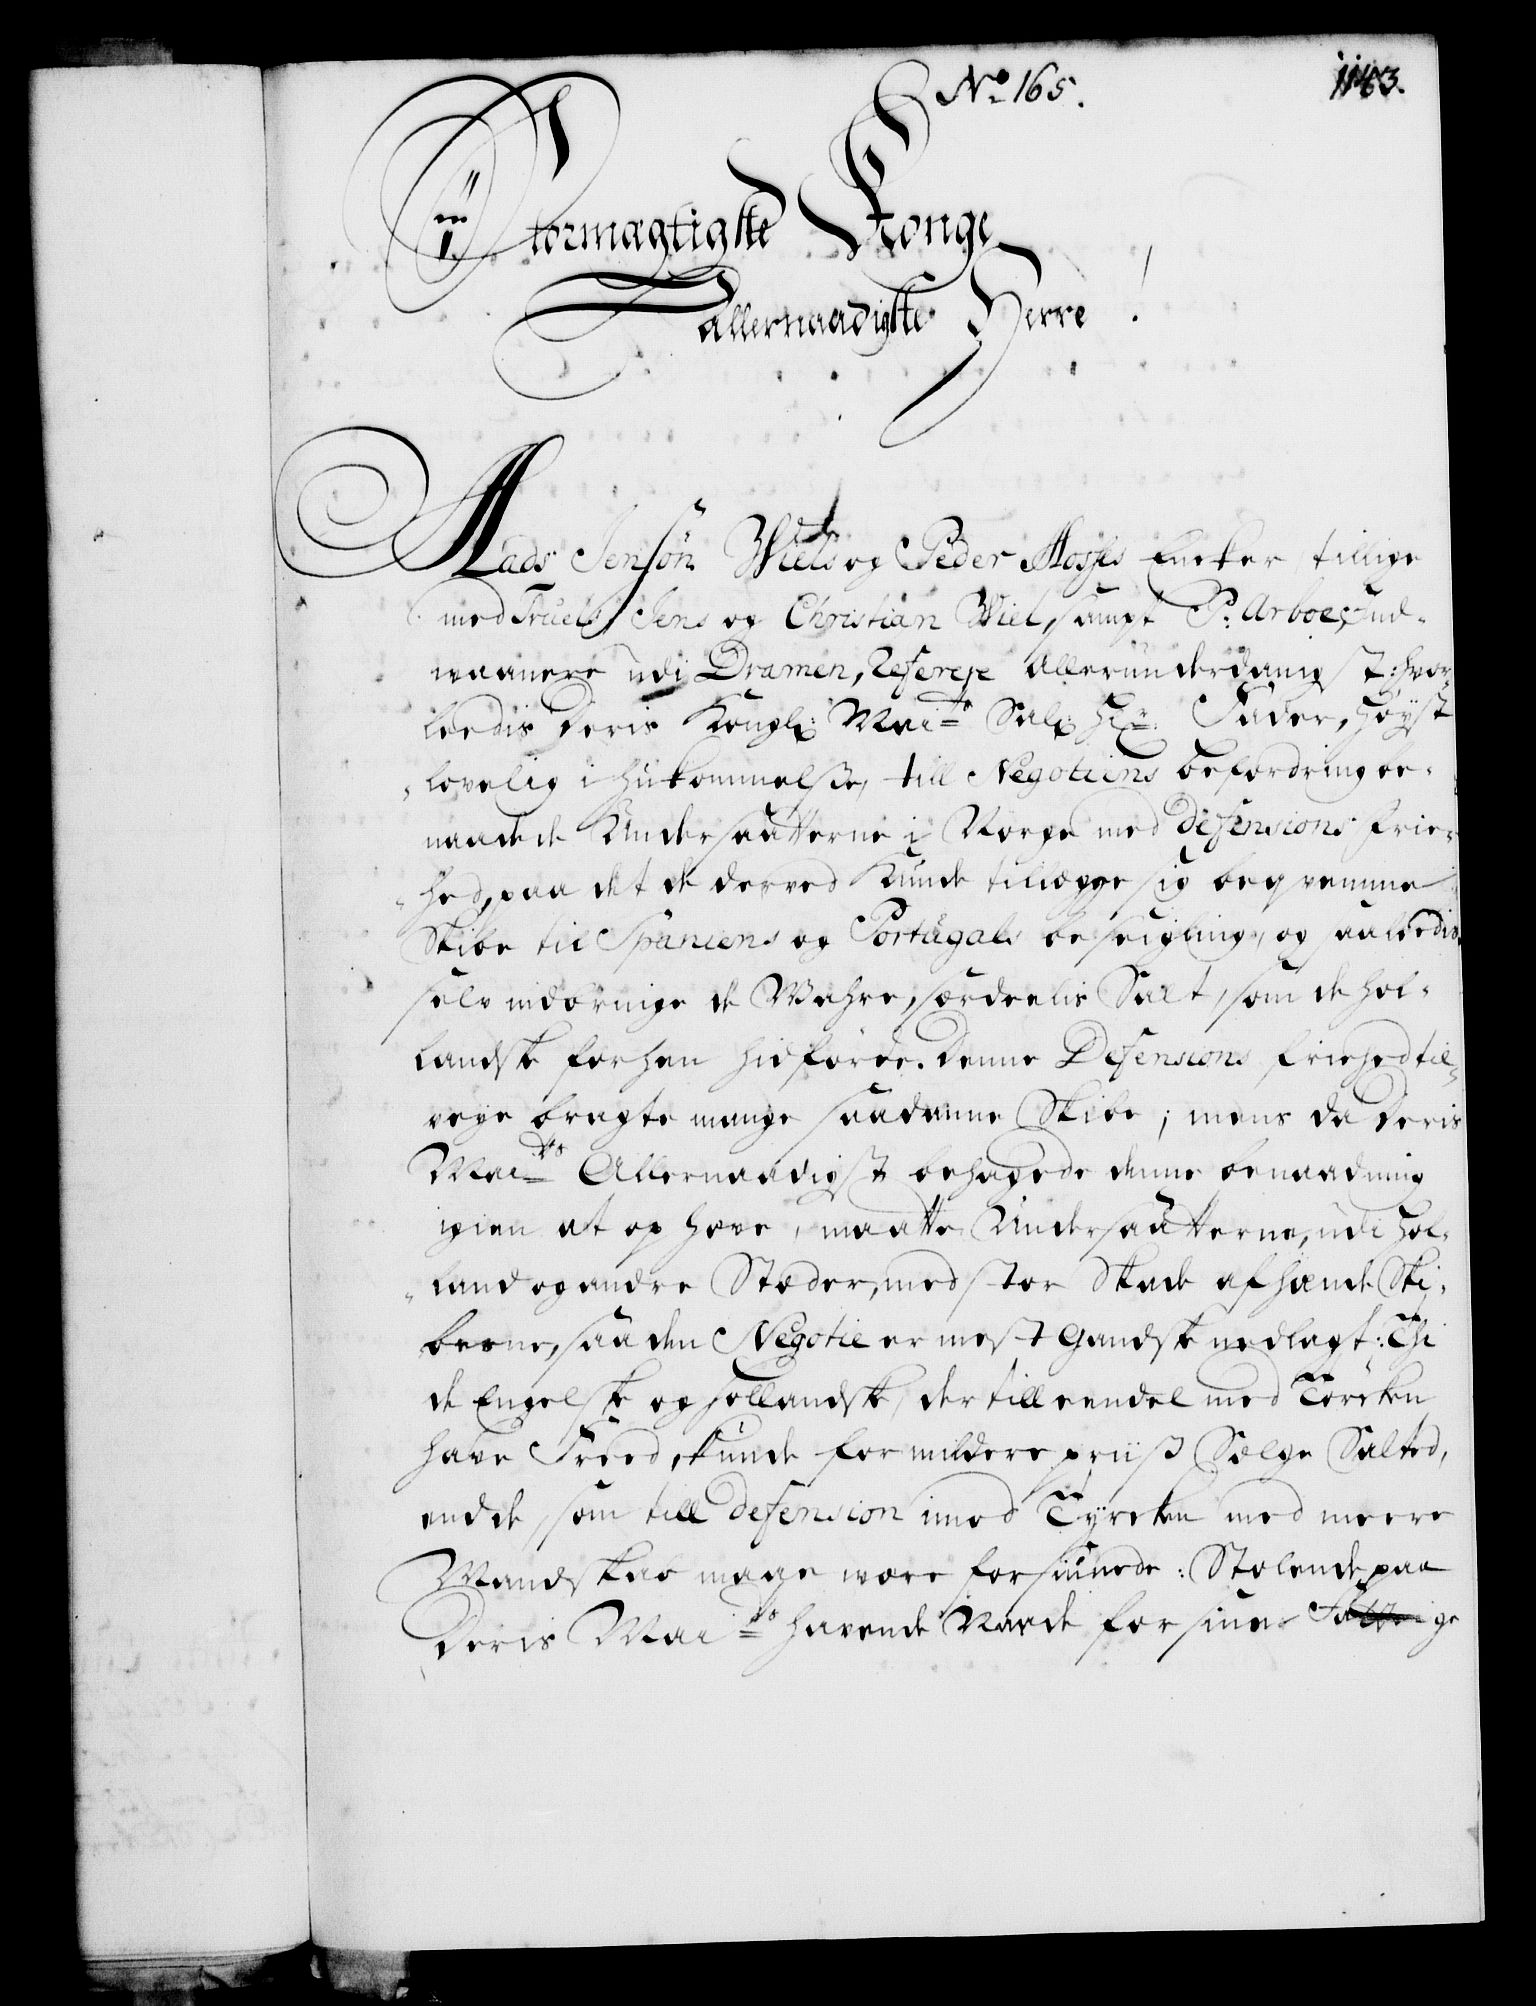 No 165.
1143.
Stormægtigste Konge
Allernaadigste Herre!
Mads Jensøn Wiels og Peder Mosses Encker tillige
med Truels, Jens og Christian Wiel, sampt P: Arboe, Ind-
waanere udi Dramen, Referere Allerunderdanigst: hvor-
leedis Deris Kongl: Mai:ts Sal: Hr: Fader, Høyst
lovelig ihukommelse, till Negotiens befordring be-
naadede Undersaatterne i Norge med Defensions Frie-
hed, paa det de derved kunde tillegge sig beqvemme
Skibe til Spaniens og Portugals beseigling, og saaleedis
selv indbringe de Wahre, særdeelis Salt, som de Hol-
landske forhen hidførde. Denne Defensions friehed til-
veye bragte mange saadanne Skibe; mens da Deris
Mai:ts Allernaadigst behagede denne benaadning
igien at ophæve, maatte Undersaatterne, udi Hol-
land og andre Stæder, med stor Skade afhænde Ski-
berne, saa den Negotie er mest Gandske nedlagt: Thi
de Engelske og Hollandske, der till eendel med Törcken
have Freed, kunde for mildere priiss Sælge Saltet,
end de, som till Defension imod Tyrcken med meere
Mandskab mage wære forsiunede: Stolende paa
Deris Mai:ts havende Naade for sine